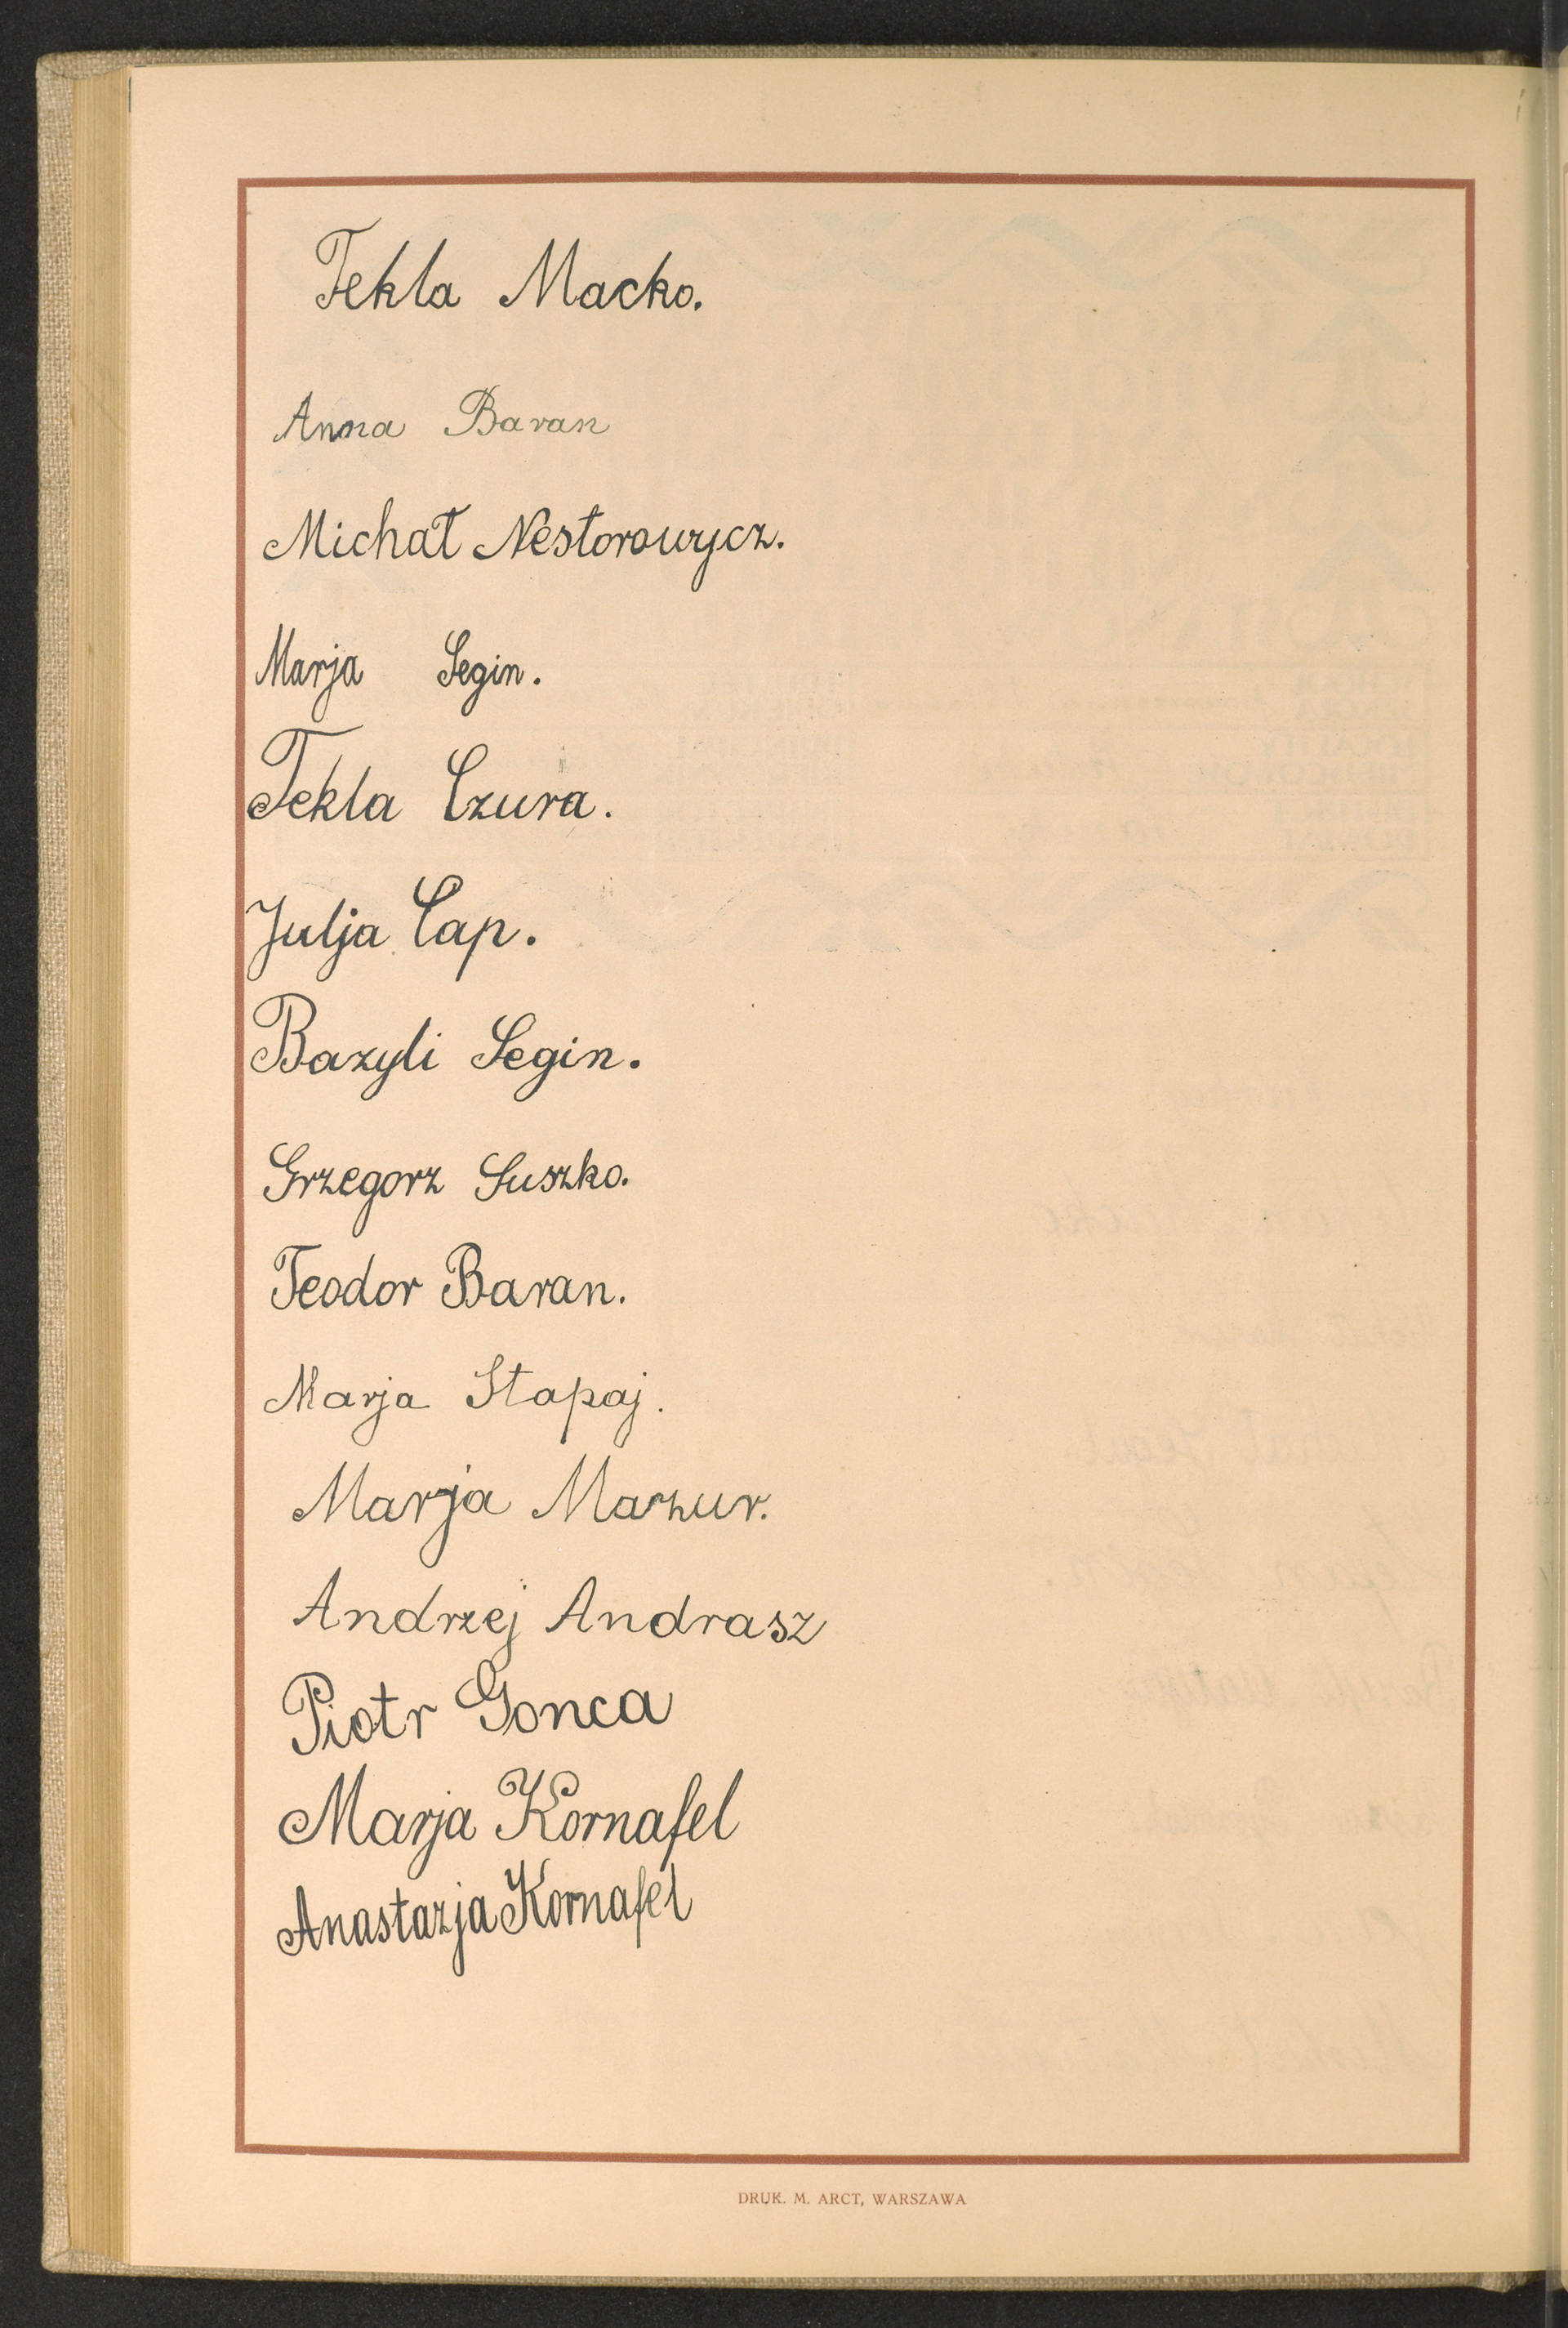 Tekla Macko.
Anna Baran
Michał Nestorowycz.
Marja Segin.
Tekla Czura.
Julja Cap.
Bazyli Segin.
Grzegorz Suszko.
Teodor Baran.
Marja Stapaj.
Marja Mazur.
Andrzej Andrasz
Piotr Gonca
Marja Kornafel
Anastazja Kornafel
DRUK. M. ARCT, WARSZAWA